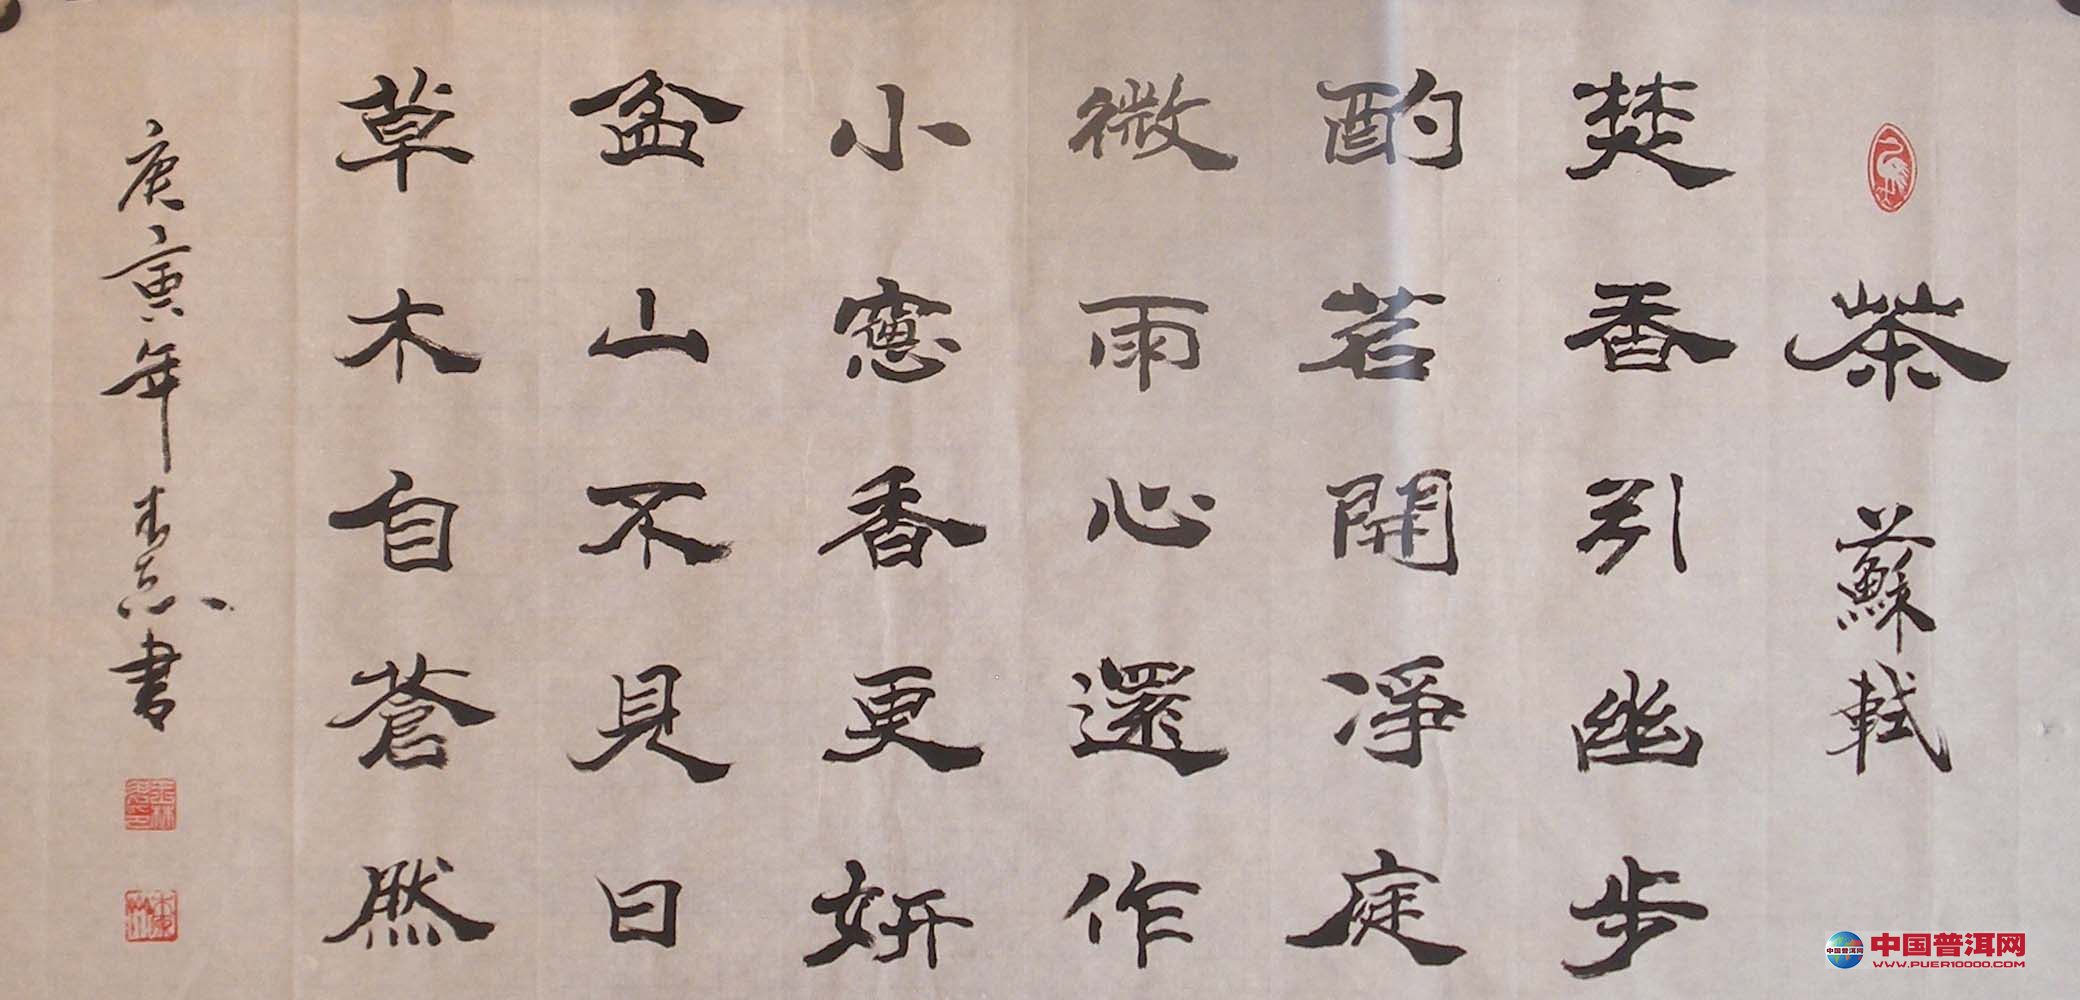 茶 蘇軾
焚香引幽步
酌茗開淨庭
微雨心還作
小窻香更妍
盆山不見日
草木自蒼然
庚寅年 志書
中国普洱网
WWW.PUER10000.COM